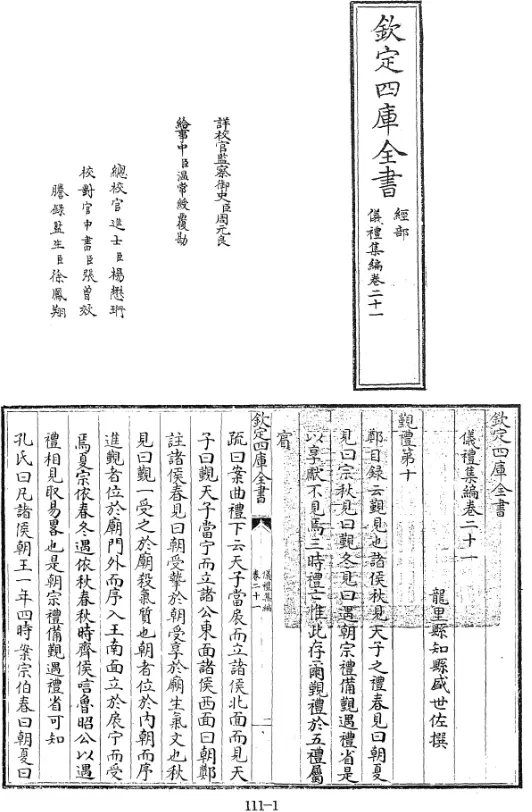 欽定四庫全書
經部
儀禮集編卷二十一
詳校官監察御史臣周元良
給事中臣溫常綬覆勘
總校官進士臣楊懋珩
校對官中書臣張曾效
謄錄監生臣徐鳳翔
欽定四庫全書
儀禮集編卷二十一
龍里縣知縣盛世佐撰
覲禮第十
鄭目録云覲見也諸侯秋見天子之禮春見曰朝夏
見曰宗秋見曰覲冬見曰遇朝宗禮備覲遇禮省是
以享獻不見焉三時禮亡惟此存爾覲禮於五禮屬
賓
欽定四庫全書
儀禮集編
卷二十一
一
疏曰案曲禮下云天子當扆而立諸侯北面而見天
子曰覲天子當宁而立諸公東面諸侯西面曰朝鄭
註諸侯春見曰朝受摯於朝受享於廟生氣文也秋
見曰覲一受之於廟殺氣質也朝者位於內朝而序
進覲者位於廟門外而序入王南面立於扆宁而受
焉夏宗依春冬遇依秋春秋時齊侯唁魯昭公以遇
禮相見取易畧也是朝宗禮備覲遇禮省可知
孔氏曰凡諸侯朝王一年四時案宗伯春曰朝夏曰
111-1